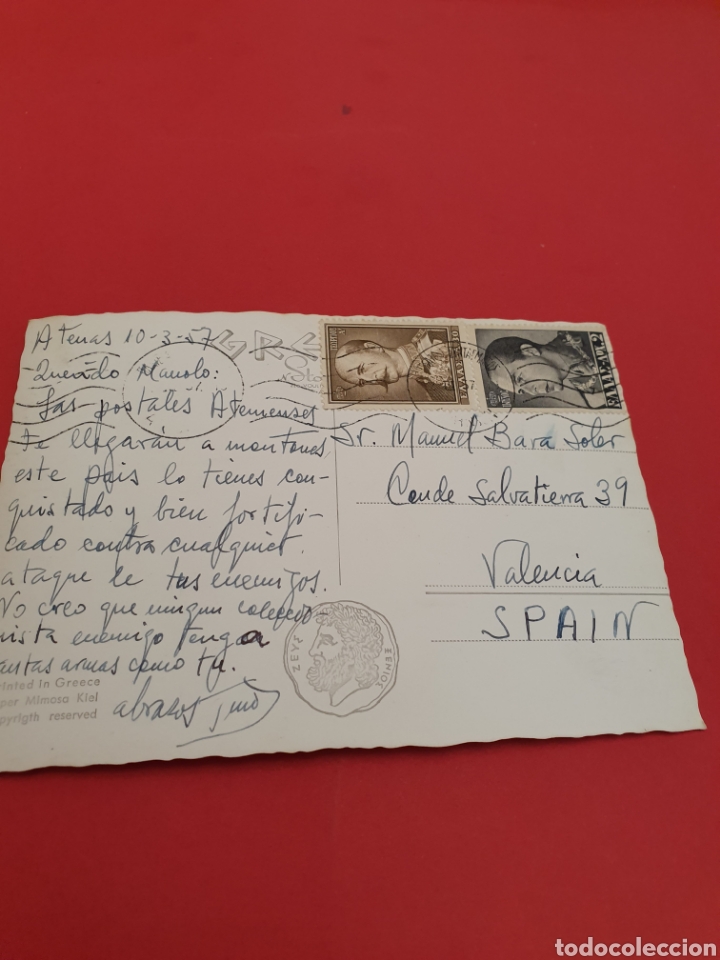 Atenas 10-3-57
Querido Manolo:
Las postales Atenienses
te llegarán a montones
este pais lo tienes con-
quistado y bien fortifi-
cado contra cualquier
ataque de tus enemigos.
No creo que ningun coleccio-
nista enemigo tenga
tantas armas como tu.
abrazos
Sr. Manuel Bara Soler
Conde Salvatierra 39
Valencia
SPAIN
ΕΛΛΑΣ
ΕΛΛΑΣ ΔΡ. 2
ΖΕΥΣ
ΞΕΝΙΟΣ
rinted in Greece
per Mimosa Kiel
opyrigth reserved
todocoleccion